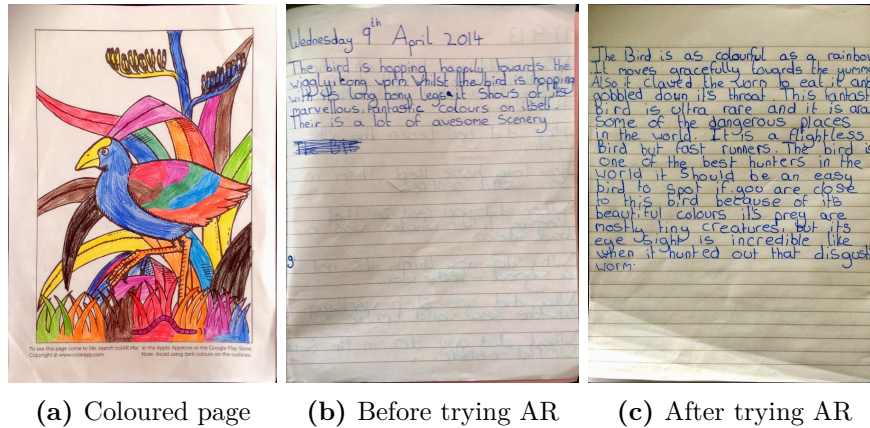 To see this page come to life, search colAR Mix in the Apple Appstore or the Google Play Store.
Copyright @ www.colarapp.com Note: Avoid using dark colours on the outlines.
(a) Coloured page
Wednesday 9th April 2014
The bird is hopping happily towards the
wiggly, long worm. Whilst the bird is hopping
with its long bony legs it shows of its
marvellous fantastic colours on itself.
Their is a lot of awesome scenery
(b) Before trying AR
The Bird is as colourful as a rainbow
It moves gracefully towards the yumm
Also it clawed the worn to eat it and
gobbled down it's throat. This fantast
Bird is ultra rare and it is aro
Some of the dangerous places
in the world. It is a flightless
Bird but fast runners. The bird is
one of the best hunters in the
world it Should be an easy
bird to spot if you are close
to this bird because of it's
beautiful colours it's prey are
mostly tiny creatures, but its
eye sight is incredible like
when it hunted out that disgusti
worm.
(c) After trying AR